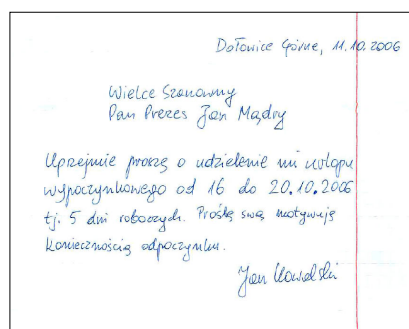 Dołowice Górne, 11.10.2006
Wielce Szanowny
Pan Prezes Jan Mądry
Uprzejmie proszę o udzielenie mi urlopu
wypoczynkowego od 16 do 20.10.2006
tj. 5 dni roboczych. Prośbę swą motywuję
koniecznością odpoczynku.
Jan Kowalski